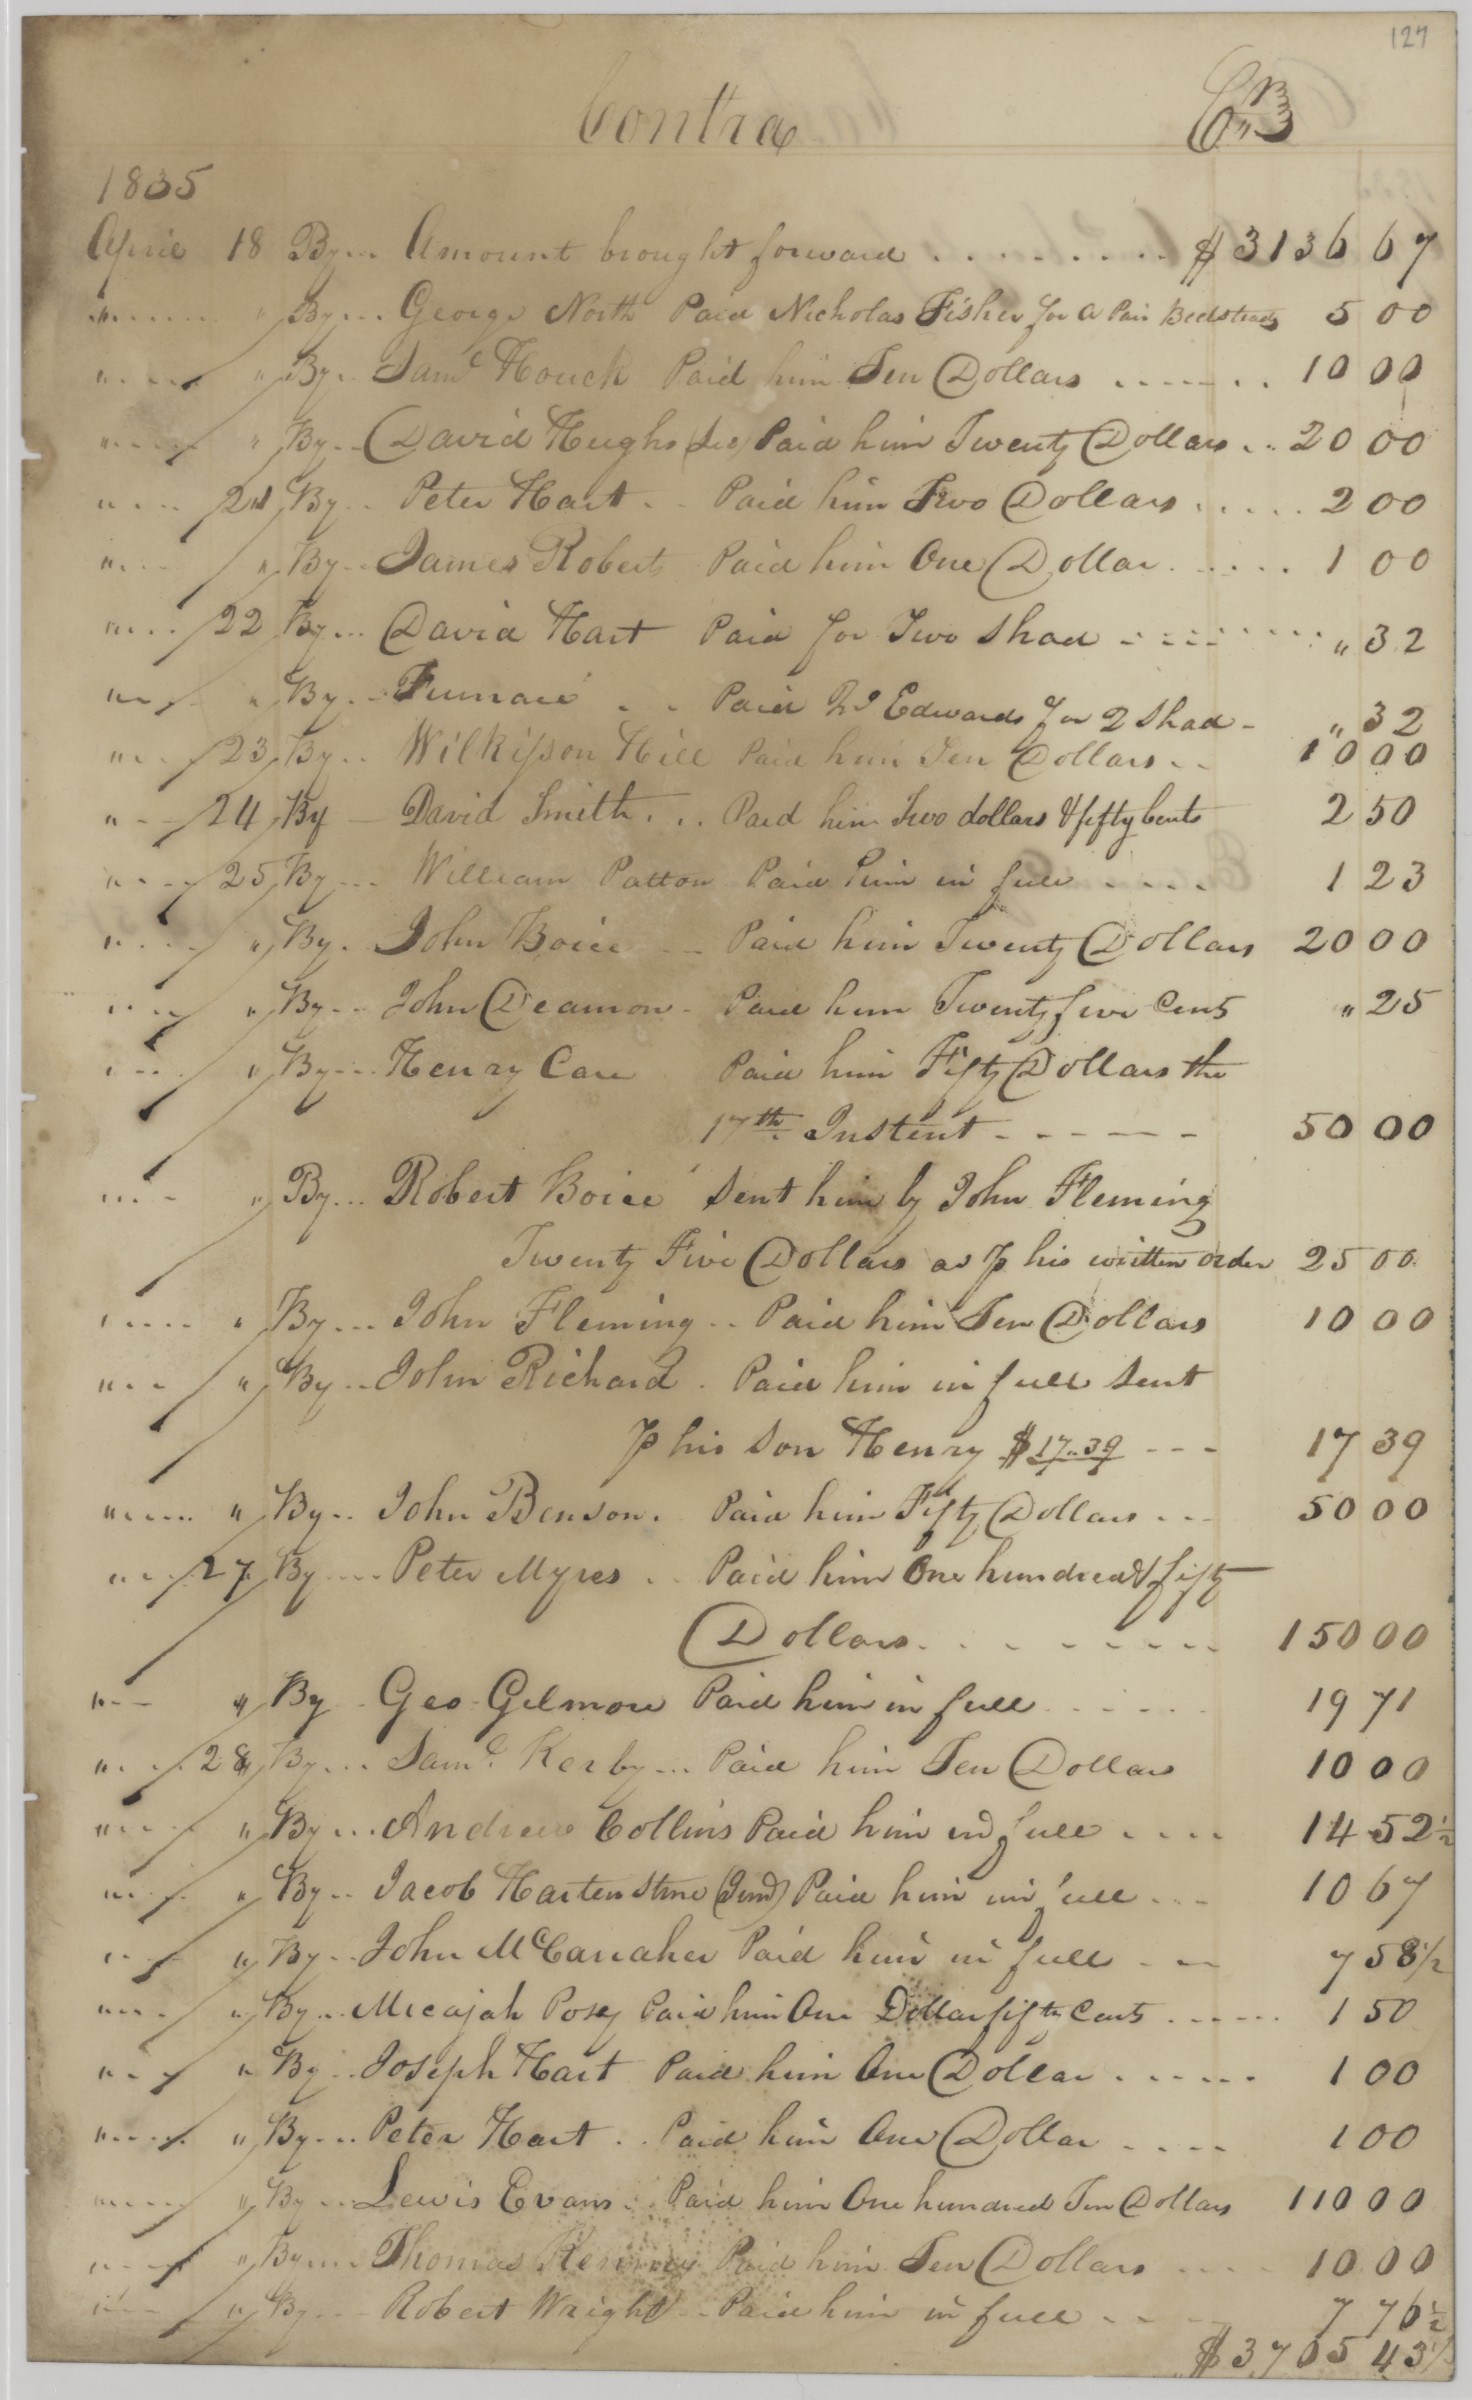 127
Contra Cr
1835
April 18 By... Amount brought forward . . . . . . . . . $ 3136 67
" " By... George North Paid Nicholas Fisher for a Pair Bedsteads 5 00
" " By.. Saml Houck Paid him Ten Dollars . . . . . . . 10 00
" " By... David Hughs Paid him Twenty Dollars .. 20 00
" 21 By.. Peter Hart .. Paid him Two Dollars . . . . . 2 00
" " By.. James Roberts Paid him One Dollar . . . . . 1 00
" 22 By... David Hart Paid for Two Shad - - - - " 32
" " By.. Furnace . . Paid Edwards for 2 Shad - " 32
" 23 By.. Wilkisson Hill Paid him Ten Dollars .. 10 00
" 24 By - David Smith . .. Paid him Two dollars & fifty Cents 2 50
" 25 By... William Patton Paid him in full . . . . 1 23
" " By.. John Boice ... Paid him Twenty Dollars 20 00
" " By... John Deamon . Paid him Twenty five Cents " 25
" " By.... Henry Care Paid him Fifty Dollars the
17th Instent - - - - - 50 00
" " By... Robert Boice Sent him by John Fleming
Twenty Five Dollars as ⅌ his written order 25 00
" " By... John Fleming .. Paid him Ten Dollars 10 00
" " By... John Richard . Paid him in full Sent
⅌ his Son Henry $17..39 - - - 17 39
" " By.. John Benson . Paid him Fifty Dollars ... 50 00
" 27 By.... Peter Myres .. Paid him One hundred & fifty
Dollars . . . . . . . . 150 00
" " By .. Geo Gilmore Paid him in full . . . . . 19 71
" 28 By... Saml Kerby ... Paid him Ten Dollars 10 00
" " By... Andrew Collins Paid him in full . . . . 14 52½
" " By.. Jacob Hartenstine Paid him in full ... 10 67
" " By.. John McCanaher Paid him in full . -- 7 58½
" " By.. Micajah Posey Paid him One Dollar fifty Cents . . . . . . 1 50
" " By .. Joseph Hart Paid him One Dollar . . . . . . 1 00
" " By... Peter Hart .. Paid him One Dollar . . . . 1 00
" " By... Lewis Evans .. Paid him One hundred Ten Dollars 110 00
" " By.... Thomas Kenney Paid him Ten Dollars . . . . 10 00
" " By... Robert Wright .. Paid him in full . . . 7 76½
$ 3705 43½